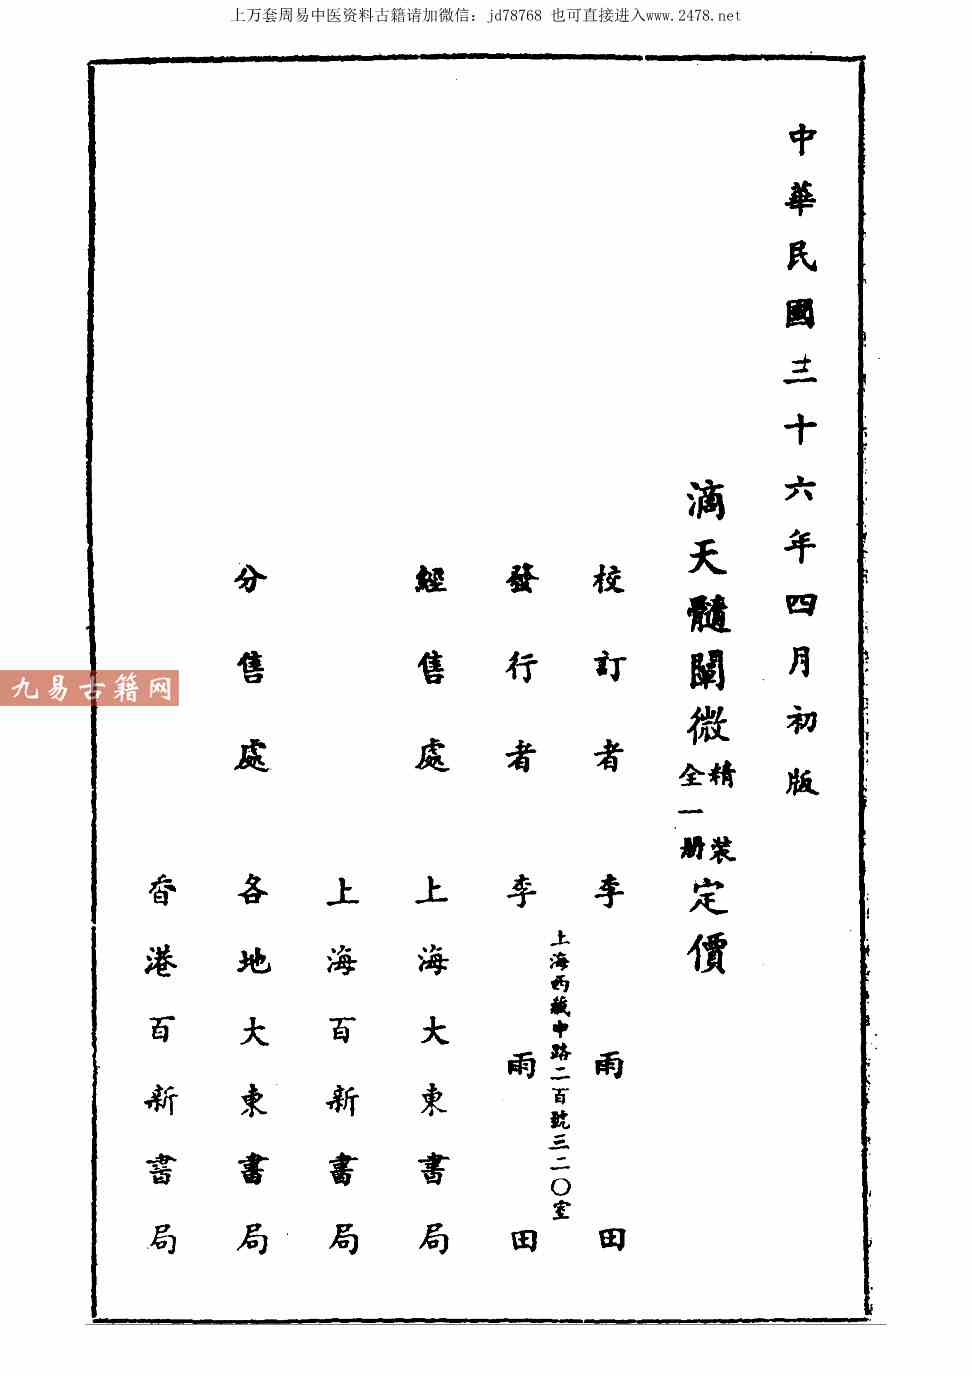 上万套周易中医资料古籍请加微信：jd78768 也可直接进入www.2478.net
中華民國三十六年四月初版
滴天髓闡微精裝全一册定價
校訂者 李雨田
上海西藏中路二百號三二〇室
發行者 李雨田
經售處 上海大東書局
上海百新書局
分售處 各地大東書局
香港百新書局
九易古籍网